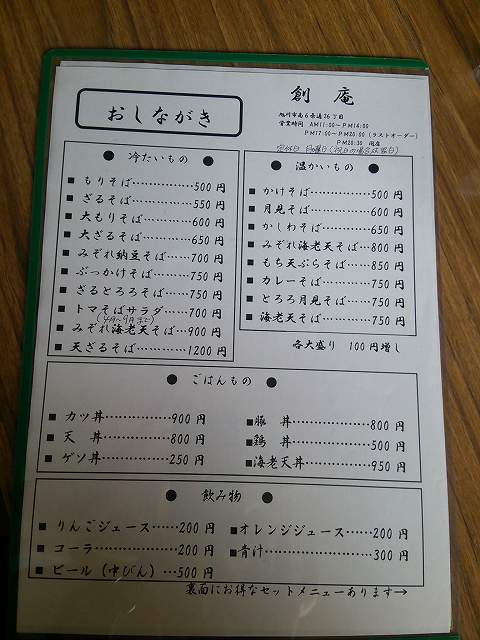 おしながき
創庵
旭川市南6条通26丁目
営業時間 AM11:00～PM14:00
PM17:00～PM20:00 (ラストオーダー)
PM20:30 閉店
定休日 日曜日(祝日の場合は翌日)
● 冷たいもの ●
■ もりそば……………500円
■ ざるそば……………550円
■ 大もりそば…………600円
■ 大ざるそば…………650円
■ みぞれ納豆そば……700円
■ ぶっかけそば………750円
■ ざるとろろそば……750円
■ トマそばサラダ……700円
(4月～9月まで)
■ みぞれ海老天そば…900円
■ 天ざるそば…………1200円
● 温かいもの ●
■ かけそば……………500円
■ 月見そば……………600円
■ かしわそば…………650円
■ みぞれ海老天そば…800円
■ もち天ぷらそば……850円
■ カレーそば…………750円
■ とろろ月見そば……750円
■ 海老天そば…………750円
各大盛り 100円増し
● ごはんもの ●
■ カツ丼……………900円
■ 天 丼……………800円
■ ゲソ丼……………250円
■豚 丼……………800円
■鶏 丼……………500円
■海老天丼…………950円
● 飲み物 ●
■ りんごジュース……200円
■ コーラ……………200円
■ ビール(中びん)…500円
■オレンジジュース……200円
■青汁…………………300円
裏面にお得なセットメニューあります→